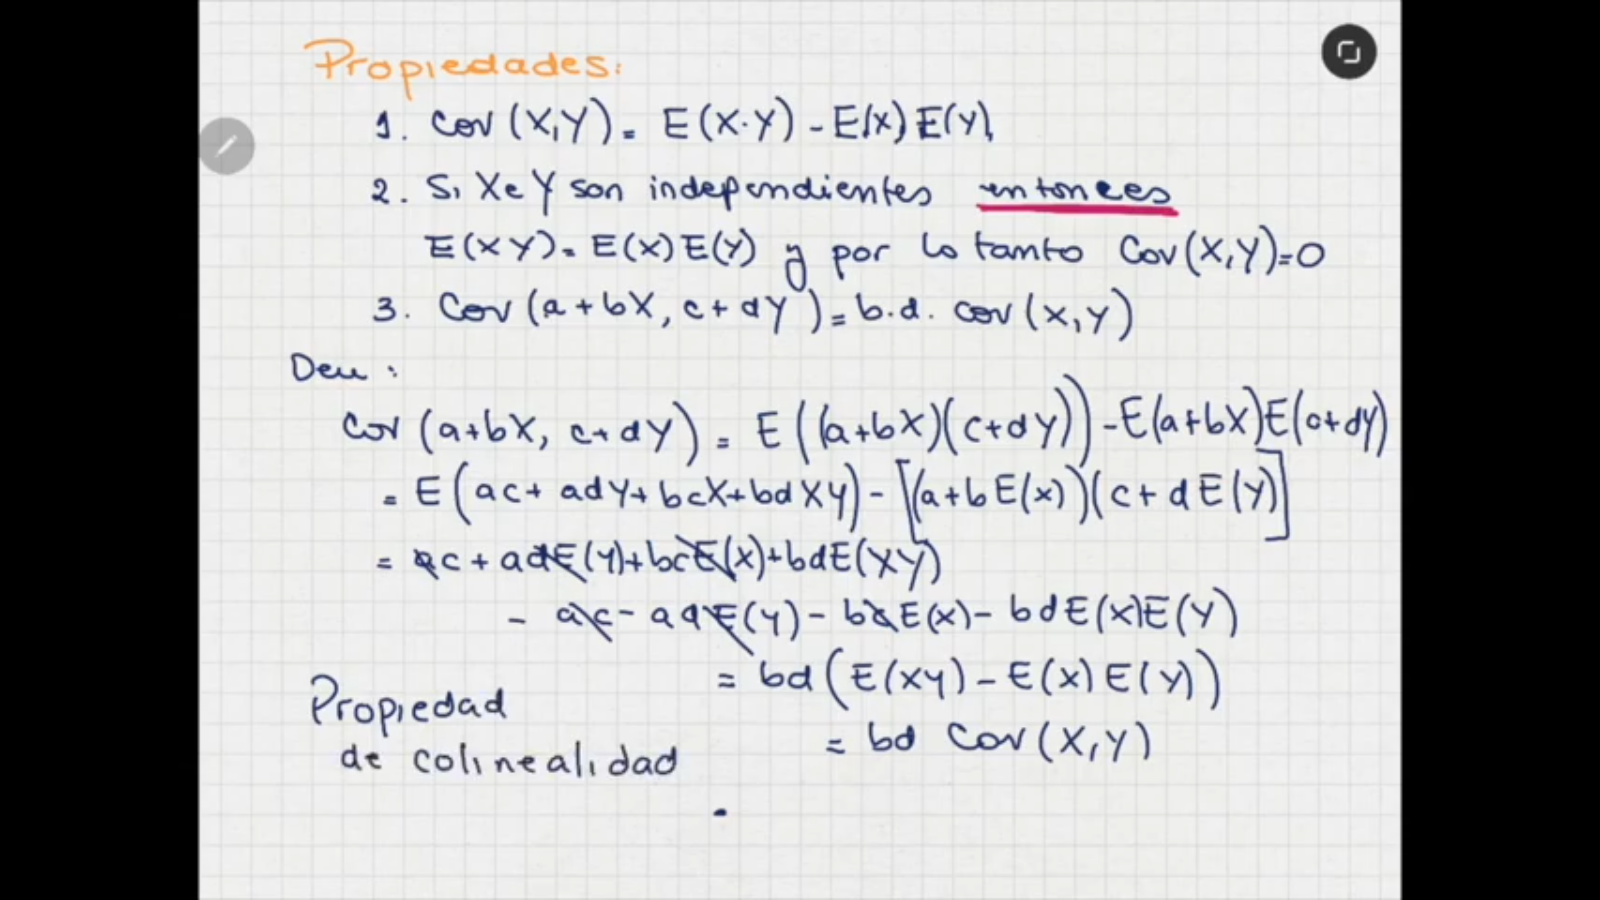 Propiedades:
1. Cov (X,Y) = E(X·Y) - E(X) E(Y)
2. Si X e Y son independientes entonces
E(XY) = E(X) E(Y) y por lo tanto Cov(X,Y)=0
3. Cov (a+bX, c+dY) = b.d. cov(X,Y)
Dem:
Cov (a+bX, c+dY) = E((a+bX)(c+dY)) - E(a+bX)E(c+dY)
= E(ac+ adY+ bcX+bdXY) - [(a+bE(X))(c+dE(Y)]
= ac + adE(Y)+bcE(X)+bdE(XY)
- ac - adE(Y) - bcE(X) - bdE(X)E(Y)
= bd (E(XY) - E(X) E(Y))
= bd Cov (X,Y)
Propiedad
de colinealidad